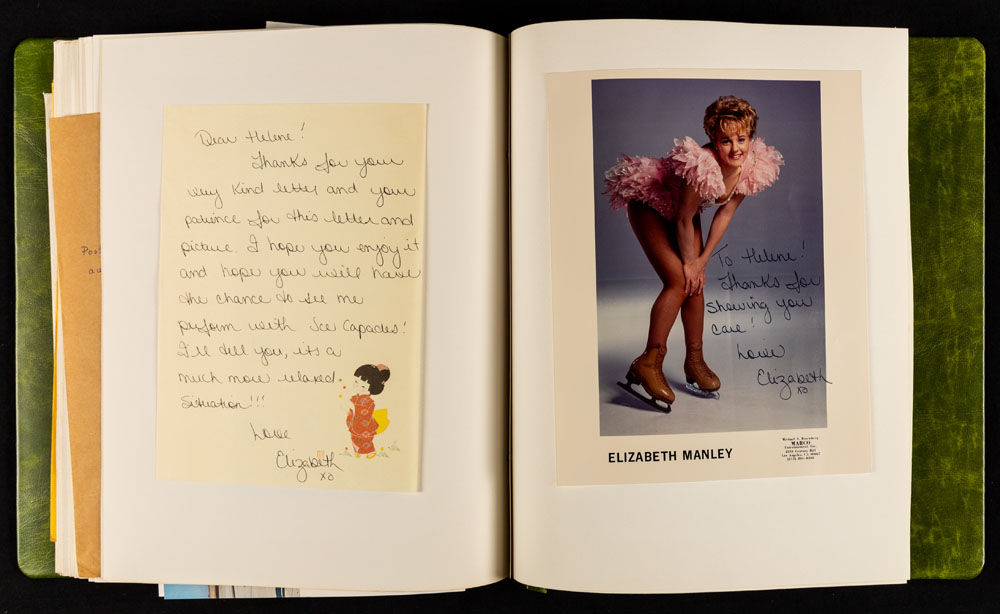 Dear Helene!
Thanks for your
very kind letter and your
patience for this letter and
picture. I hope you enjoy it
and hope you will have
the chance to see me
perform with Ice Capades!
I'll tell you, its a
much more relaxed
situation!!!
Love
Elizabeth
xo
Post
au
To Helene!
Thanks for
showing you
care!
Love
Elizabeth
xo
ELIZABETH MANLEY
Michael A. Rosenberg
MARCO
Entertainment, Inc.
Los Angeles, CA